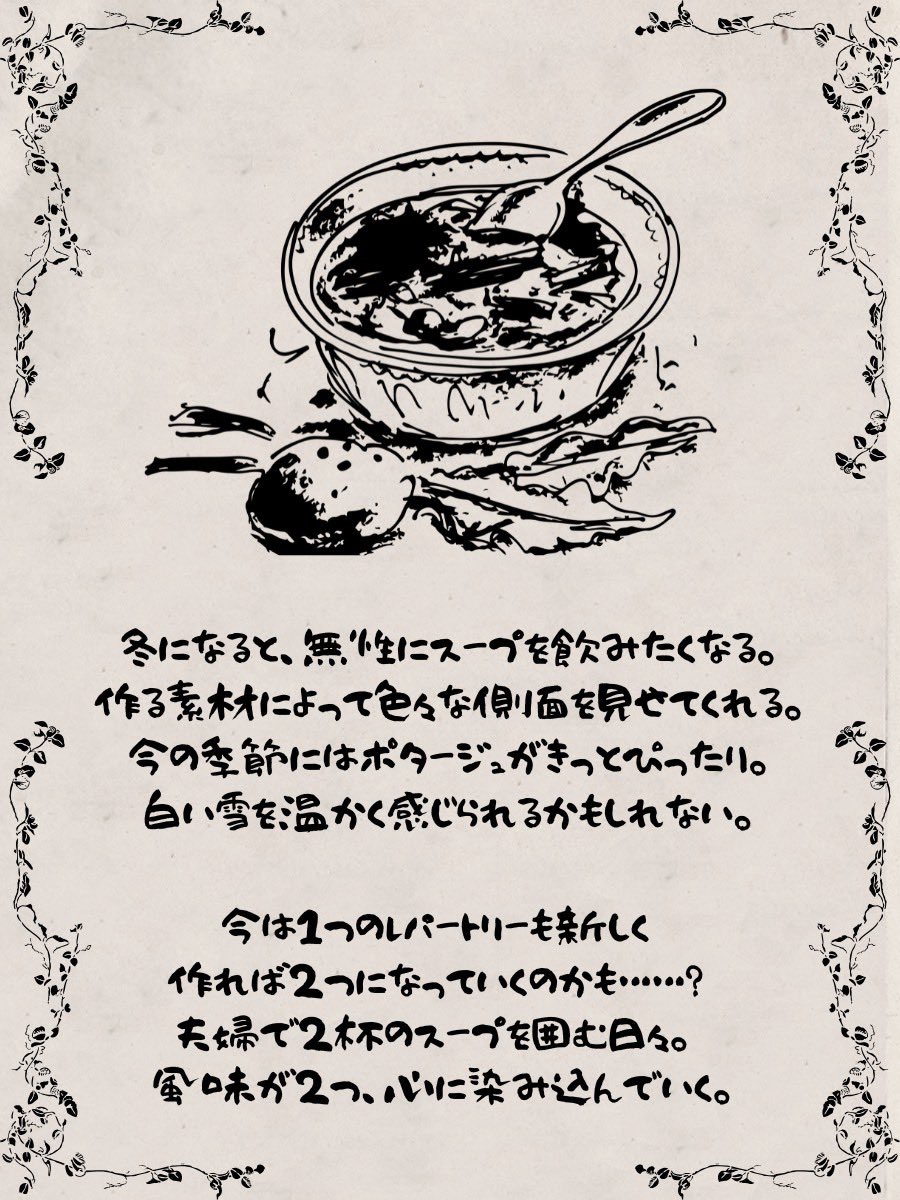 冬になると、無性にスープを飲みたくなる。
作る素材によって色々な側面を見せてくれる。
今の季節にはポタージュがきっとぴったり。
白い雪を温かく感じられるかもしれない。
今は1つのレパートリーも新しく
作れば2つになっていくのかも……?
夫婦で2杯のスープを囲む日々。
風味が2つ、心に染み込んでいく。